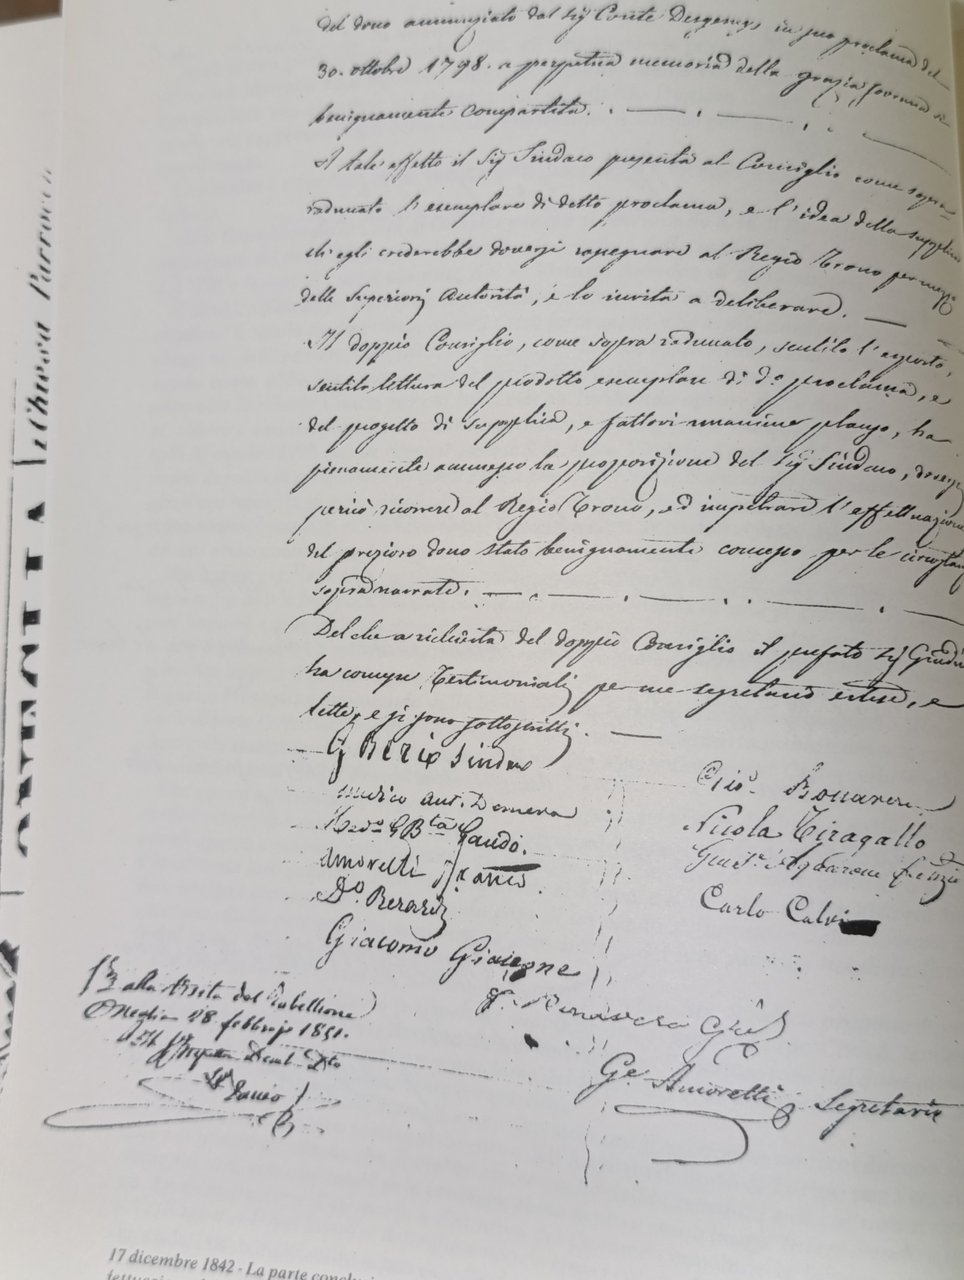 del dono annunziato dal Sig Conte Desgeneys in suo proclama del
30. ottobre 1798. a perpetua memoria della grazia Sovrana sì
benignamente compartita.
A tale effetto il Sig Sindaco presenta al Consiglio come sopra
radunato l'esemplare di detto proclama, e l'idea della supplica
ch'egli crederebbe doversi rassegnare al Regio Trono per mezzo
delle Superiori Autorità, e lo invita a deliberare.
Il doppio Consiglio, come sopra radunato, sentito l'esposto,
sentita lettura del prodotto esemplare di do proclama, e
del progetto di supplica, e fattovi unanime plauso, ha
pienamente ammesso la proposizione del Sig Sindaco, doversi
perciò ricorrere al Regio Trono, ed impetrare l'effettuazione
del prezioso dono stato benignamente concesso per le circostan
sopranarrate.
Del che a richiesta del doppio Consiglio il prefato Sig Giudice
ha concesse Testimoniali per me segretario estese, e
lette, e si sono sottoscritti.
G Berio Sindaco
Gio. Bonavera
Medico Ant. Demora
Nicola Tiragallo
G Bta Gandò.
Amoretti
Do. Berardi
Carlo Calvi
Giacomo Giaccone
Ge. Amoretti Segretario
alla Visita del Tabellione
Oneglia 28 febbrajo 1851.
17 dicembre 1842 - La parte conclu